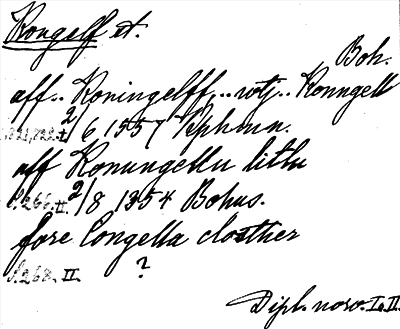 Kongelf st.
Boh.
aff.. Koningelff,.. wtj.. Konngell
2/6 1557
aff Konungellu litlu
S. 266. II. 2/8 1354 Bohus.
fore Congella closther
S. 268. II. ?
Dipl. norv. I. II.